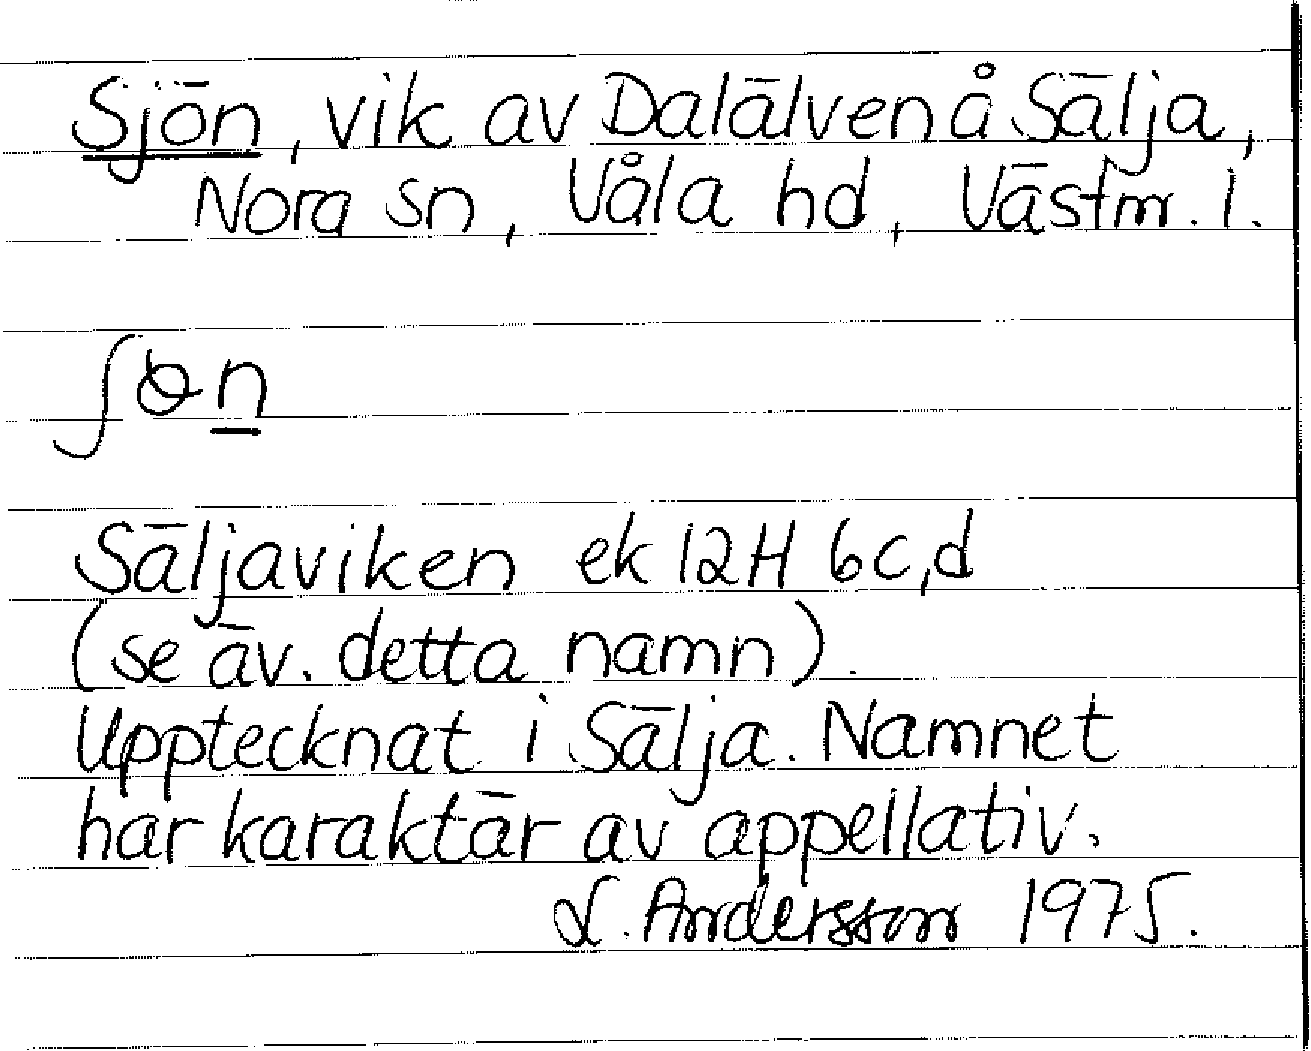 Sjön, vik av Dalälven å Sälja,
Nora sn, Våla hd, Västm. l.
Säljaviken ek 12H 6c,d
(se äv. detta namn).
Upptecknat i Sälja. Namnet
har karaktär av appellativ.
L. Andersson 1975.